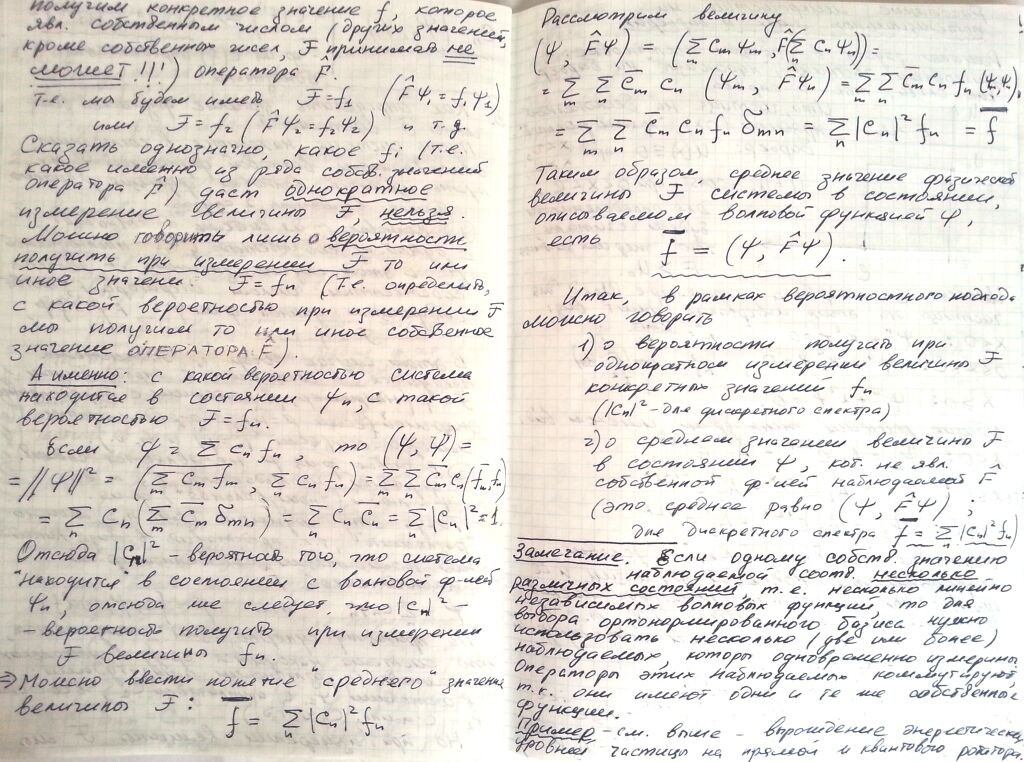 получим конкретное значение f, которое
явл. собственным числом (других значений,
кроме собственных чисел, F принимать не
может!!!) оператора F̂.
т.е. мы будем иметь F = f₁ (F̂Ψ₁ = f₁Ψ₁)
или F = f₂ (F̂Ψ₂ = f₂Ψ₂) и т.д.
Сказать однозначно, какое fᵢ (т.е.
какое именно из ряда собств. значений
оператора F̂) даст однократное
измерение величины F, нельзя.
Можно говорить лишь о вероятности
получить при измерении F то или
иное значение F = fₙ (т.е. определить,
с какой вероятностью при измерении F
мы получим то или иное собственное
значение ОПЕРАТОРА F̂).
А именно: с какой вероятностью система
находится в состоянии Ψₙ, с такой
вероятностью F = fₙ.
Если Ψ = Σ cₙ fₙ, то (Ψ, Ψ) =
= ||Ψ||² = (Σₘ cₘ fₘ, Σₙ cₙ fₙ) = Σₘ Σₙ c̄ₘ cₙ (fₘ, fₙ)
= Σₙ cₙ (Σₘ c̄ₘ δₘₙ) = Σₙ cₙ c̄ₙ = Σₙ |cₙ|² = 1.
Отсюда |cₙ|² – вероятность того, что система
"находится" в состоянии с волновой ф-ией
Ψₙ, отсюда же следует, что |cₙ|² –
– вероятность получить при измерении
F величины fₙ.
⇒ Можно ввести понятие "среднего" значения
величины F:
f̄ = Σₙ |cₙ|² fₙ
Рассмотрим величину
(Ψ, F̂Ψ) = (Σₘ cₘ Ψₘ, F̂(Σₙ cₙ Ψₙ)) =
= Σₘ Σₙ c̄ₘ cₙ (Ψₘ, F̂Ψₙ) = Σₘ Σₙ c̄ₘ cₙ fₙ (Ψₘ, Ψₙ)
= Σₘ Σₙ c̄ₘ cₙ fₙ δₘₙ = Σₙ |cₙ|² fₙ = f̄
Таким образом, среднее значение физической
величины F системы в состоянии,
описываемом волновой функцией Ψ,
есть
f̄ = (Ψ, F̂Ψ).
Итак, в рамках вероятностного подхода
можно говорить
1) о вероятности получить при
однократном измерении величины F
конкретных значений fₙ
(|cₙ|² – для дискретного спектра)
2) о среднем значении величины F
в состоянии Ψ, кот. не явл.
собственной ф-ией наблюдаемой F̂
(это среднее равно (Ψ, F̂Ψ);
для дискретного спектра f̄ = Σₙ |cₙ|² fₙ)
Замечание. Если одному собств. значению
наблюдаемой соотв. несколько
различных состояний, т.е. несколько линейно
независимых волновых функций, то для
выбора ортонормированного базиса нужно
использовать несколько (две или более)
наблюдаемых, которы одновременно измеримы.
Операторы этих наблюдаемых коммутируют,
т.к. они имеют одни и те же собственные
функции.
Пример – см. выше – вырождение энергетическ.
уровней частицы на прямой и квантового ротатора.